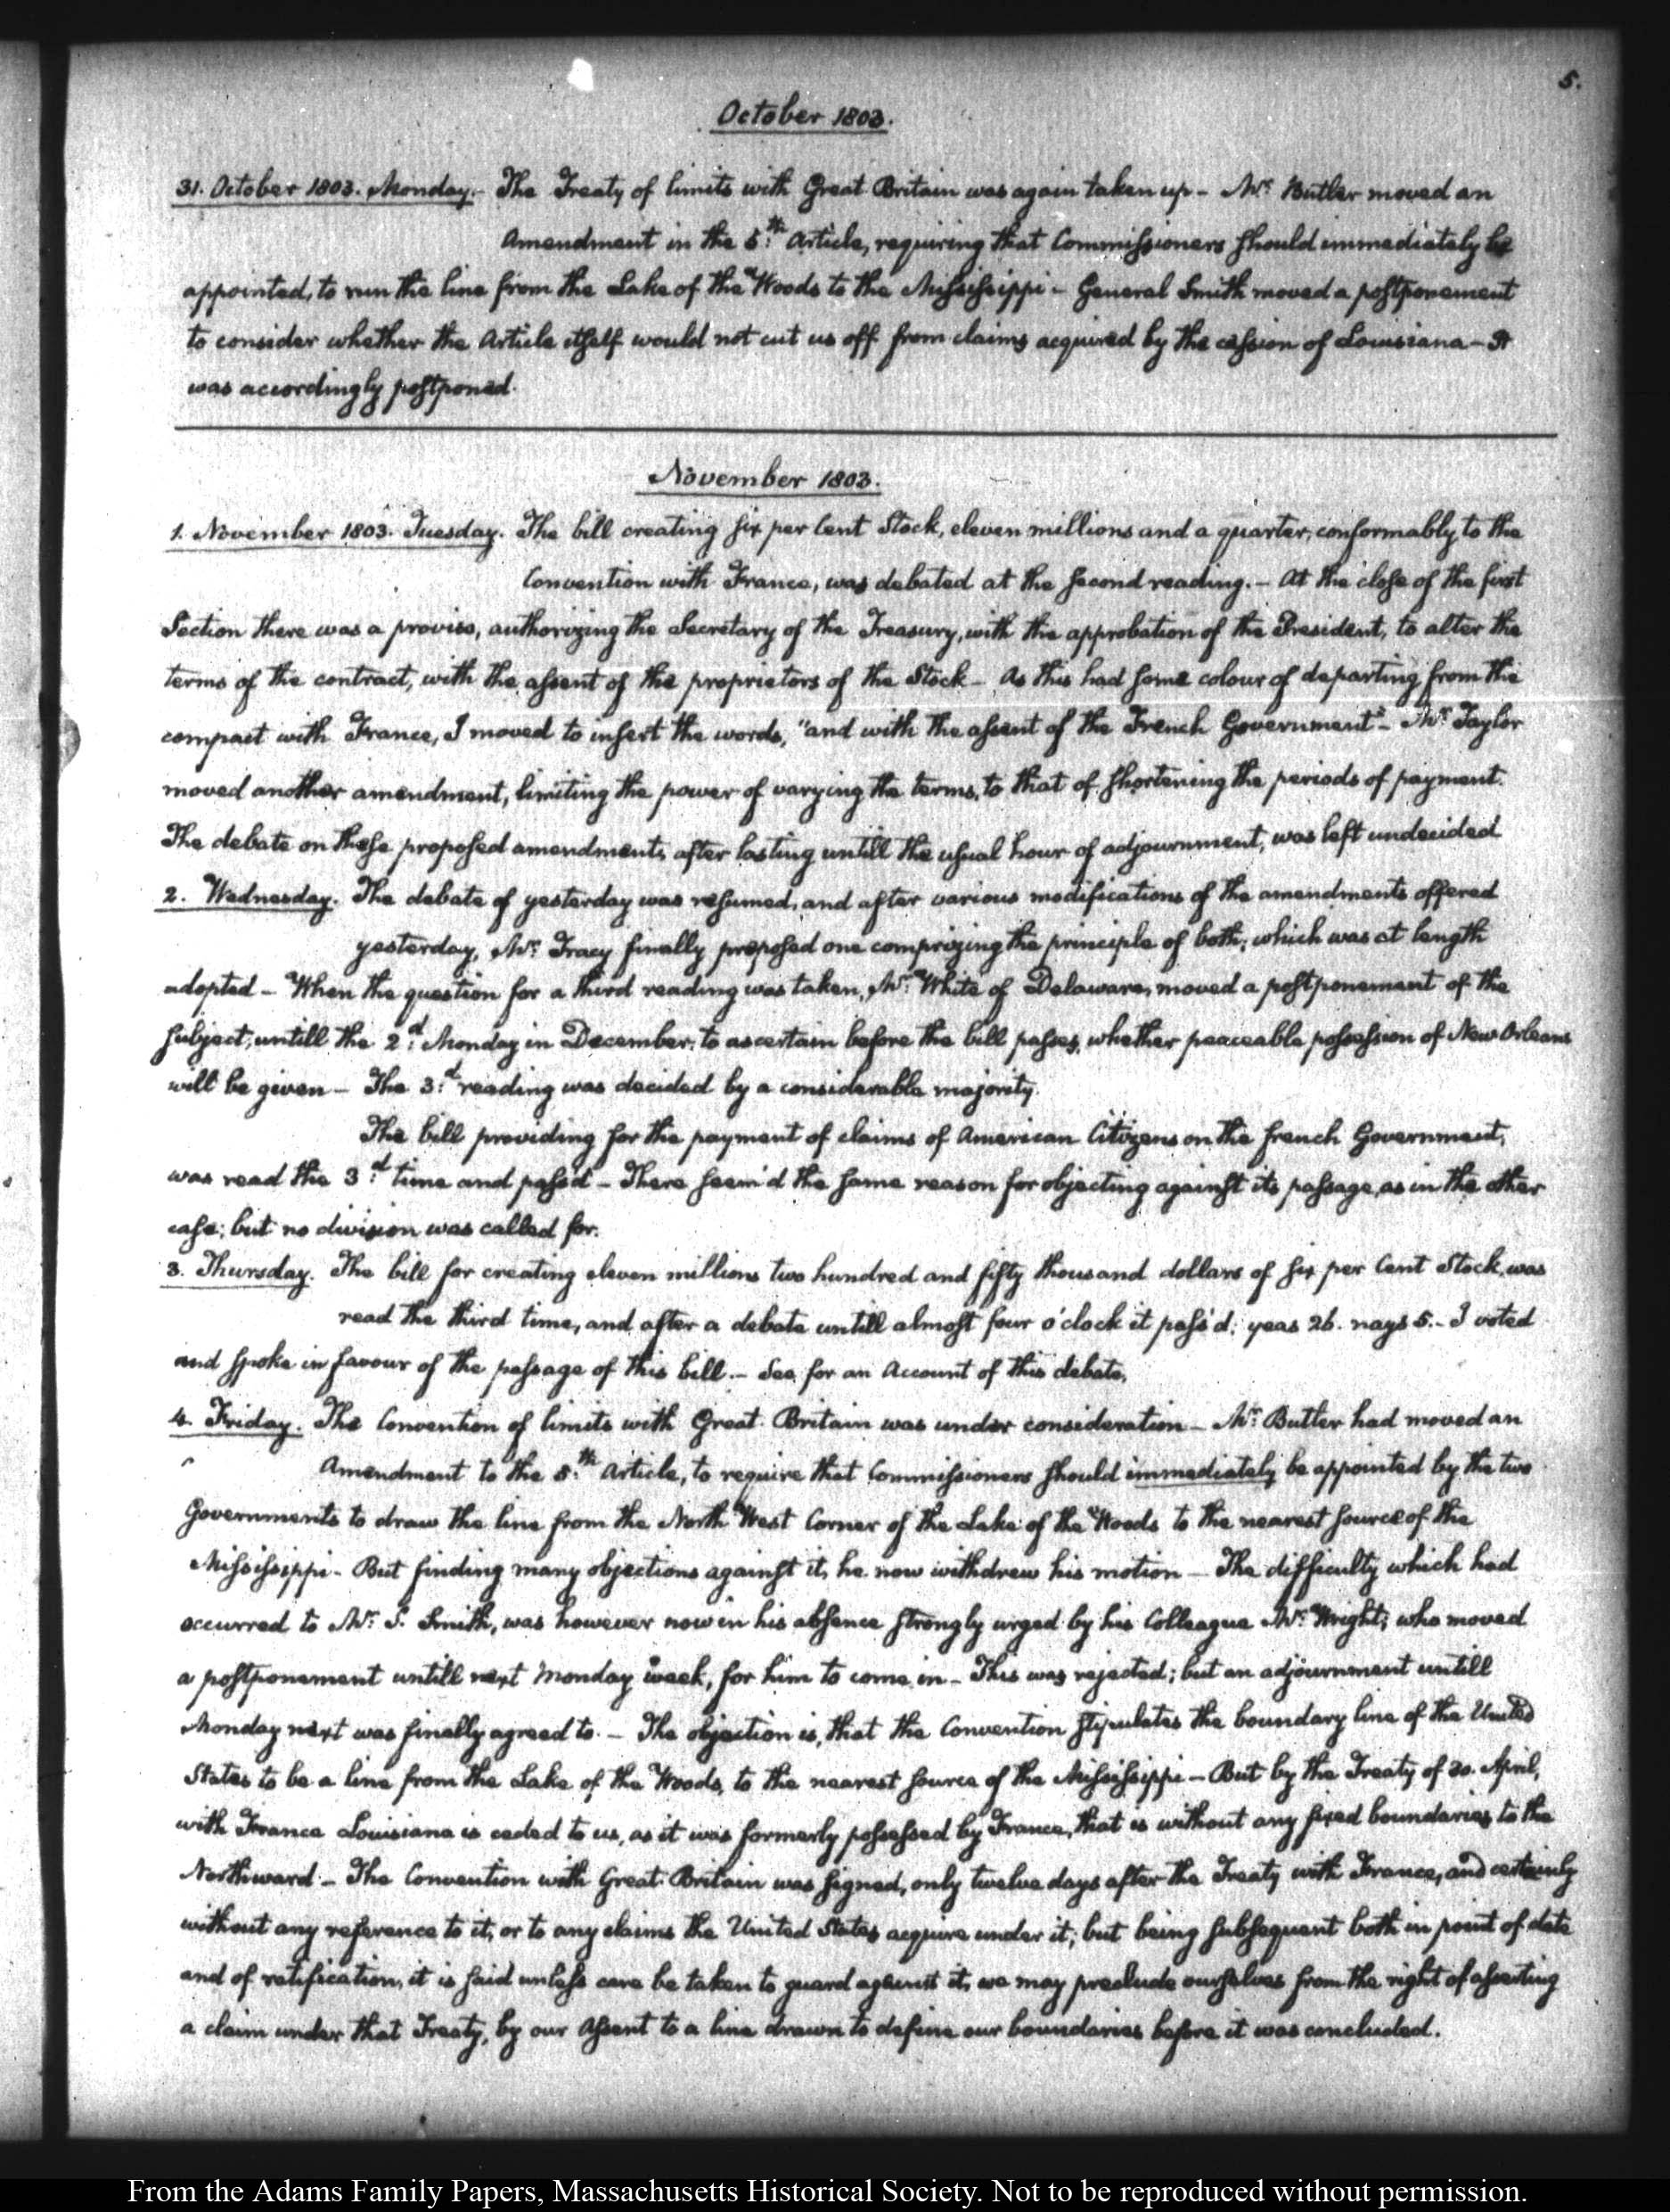 5.
October 1803.
31. October 1803. Monday. The Treaty of limits with Great Britain was again taken up – Mr. Butler moved an
Amendment in the 5.th Article, requiring that Commissioners should immediately be
appointed, to run the line from the Lake of the Woods to the Mississippi – General Smith moved a postponement
to consider whether the Article itself would not cut us off from claims acquired by the cession of Louisiana – It
was accordingly postponed.
November 1803.
1. November 1803. Tuesday. The bill creating six per Cent Stock, eleven millions and a quarter, conformably to the
Convention with France, was debated at the second reading. – At the close of the first
Section there was a proviso, authorizing the Secretary of the Treasury, with the approbation of the President, to alter the
terms of the contract, with the assent of the proprietors of the Stock – As this had some colour of departing from the
compact with France, I moved to insert the words, "and with the assent of the French Government" – Mr. Taylor
moved another amendment, limiting the power of varying the terms, to that of shortening the periods of payment.
The debate on these proposed amendments, after lasting untill the usual hour of adjournment, was left undecided
2. Wednesday. The debate of yesterday was resumed, and after various modifications of the amendments offered
yesterday, Mr. Tracy finally proposed one comprizing the principle of both; which was at length
adopted – When the question for a third reading was taken, Mr. White of Delaware, moved a postponement of the
subject, untill the 2.d Monday in December, to ascertain before the bill passes, whether peaceable possession of New Orleans
will be given – The 3.d reading was decided by a considerable majority.
The bill providing for the payment of claims of American Citizens on the french Government,
was read the 3.d time and pass'd – There seem'd the same reason for objecting against its passage, as in the other
case; but no division was called for.
3. Thursday. The bill for creating eleven millions two hundred and fifty thousand dollars of six per Cent Stock, was
read the third time, and after a debate untill almost four o'clock it pass'd; yeas 26. nays 5. – I voted
and spoke in favour of the passage of this bill. – See for an Account of this debate,
4. Friday. The Convention of limits with Great Britain was under consideration – Mr. Butler had moved an
Amendment to the 5.th Article, to require that Commissioners should immediately be appointed by the two
Governments to draw the line from the North West Corner of the Lake of the Woods to the nearest source of the
Mississippi – But finding many objections against it, he now withdrew his motion – The difficulty which had
occurred to Mr. S. Smith, was however now in his absence strongly urged by his Colleague Mr. Wright; who moved
a postponement untill next Monday week, for him to come in – This was rejected; but an adjournment untill
Monday next was finally agreed to. – The objection is, that the Convention stipulates the boundary line of the United
States to be a line from the Lake of the Woods, to the nearest source of the Mississippi – But by the Treaty of 30. April,
with France Louisiana is ceded to us, as it was formerly possessed by France, that is without any fixed boundaries to the
Northward. – The Convention with Great Britain was signed, only twelve days after the Treaty with France, and certainly
without any reference to it, or to any claims the United States acquire under it; but being subsequent both in point of date
and of ratification, it is said unless care be taken to guard against it, we may preclude ourselves from the right of asserting
a claim under that Treaty, by our Assent to a line drawn to define our boundaries before it was concluded.
From the Adams Family Papers, Massachusetts Historical Society. Not to be reproduced without permission.